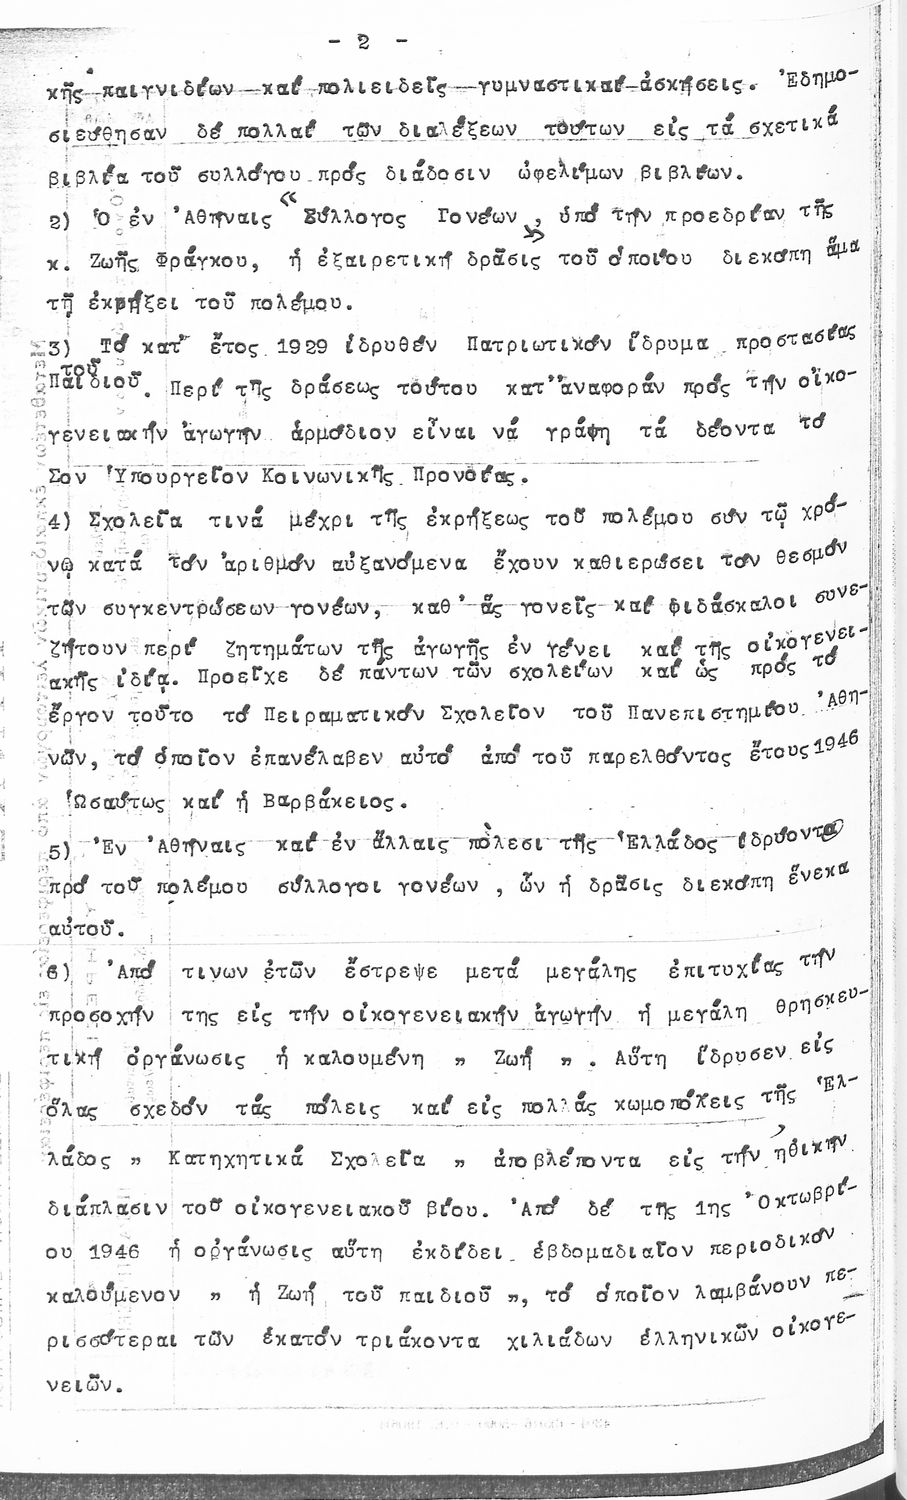 - 2 -
κῆς παιγνιδίων καί πολιειδεῖς γυμναστικαί ἀσκήσεις. Ἐδημο-
σιεύθησαν δέ πολλαί τῶν διαλέξεων τούτων εἰς τά σχετικά
βιβλία τοῦ συλλόγου πρός διάδοσιν ὠφελίμων βιβλίων.
2) Ὁ ἐν Ἀθήναις « Σύλλογος Γονέων », ὑπό τήν προεδρίαν τῆς
κ. Ζωῆς Φράγκου, ἡ ἐξαιρετική δρᾶσις τοῦ ὁποίου διεκόπη ἅμα
τῇ ἐκρήξει τοῦ πολέμου.
3) Τό κατ' ἔτος 1929 ἱδρυθέν Πατριωτικόν ἵδρυμα προστασίας
τοῦ
Παιδιοῦ. Περί τῆς δράσεως τούτου κατ'ἀναφοράν πρός τήν οἰκο-
γενειακήν ἀγωγήν ἁρμόδιον εἶναι νά γράψη τά δέοντα τό
Σον Ὑπουργεῖον Κοινωνικῆς Προνοίας.
4) Σχολεῖα τινά μέχρι τῆς ἐκρήξεως τοῦ πολέμου σύν τῷ χρό-
νῳ κατά τόν ἀριθμόν αὐξανόμενα ἔχουν καθιερώσει τόν θεσμόν
τῶν συγκεντρώσεων γονέων, καθ' ἅς γονεῖς καί διδάσκαλοι συνε-
ζήτουν περί ζητημάτων τῆς ἀγωγῆς ἐν γένει καί τῆς οἰκογενει-
ακῆς ἰδίᾳ. Προεῖχε δέ πάντων τῶν σχολείων καί ὡς πρός τό
ἔργον τοῦτο τό Πειραματικόν Σχολεῖον τοῦ Πανεπιστημίου Ἀθη-
νῶν, τό ὁποῖον ἐπανέλαβεν αὐτό ἀπό τοῦ παρελθόντος ἔτους 1946
Ὡσαύτως καί ἡ Βαρβάκειος.
5) Ἐν Ἀθήναις καί ἐν ἄλλαις πόλεσι τῆς Ἑλλάδος ἱδρύοντο
πρό τοῦ πολέμου σύλλογοι γονέων , ὧν ἡ δρᾶσις διεκόπη ἕνεκα
αὐτοῦ.
6) Ἀπό τινων ἐτῶν ἔστρεψε μετά μεγάλης ἐπιτυχίας τήν
προσοχήν της εἰς τήν οἰκογενειακήν ἀγωγήν ἡ μεγάλη θρησκευ-
τική ὀργάνωσις ἡ καλουμένη " Ζωή " . Αὕτη ἵδρυσεν εἰς
ὅλας σχεδόν τάς πόλεις καί εἰς πολλάς κωμοπόλεις τῆς Ἑλ-
λάδος " Κατηχητικά Σχολεῖα " ἀποβλέποντα εἰς τήν ἠθικήν
διάπλασιν τοῦ οἰκογενειακοῦ βίου. Ἀπό δέ τῆς 1ης Ὀκτωβρί-
ου 1946 ἡ ὀργάνωσις αὕτη ἐκδίδει ἑβδομαδιαῖον περιοδικόν
καλούμενον " ἡ Ζωή τοῦ παιδιοῦ ", τό ὁποῖον λαμβάνουν πε-
ρισσότεραι τῶν ἑκατόν τριάκοντα χιλιάδων ἑλληνικῶν οἰκογε-
νειῶν.